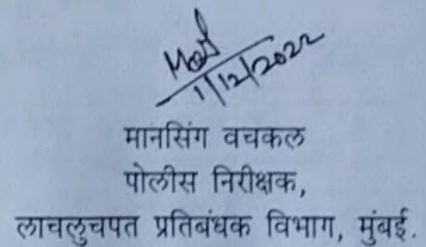 1/12/2022
मानसिंग वचकल
पोलीस निरीक्षक,
लाचलुचपत प्रतिबंधक विभाग, मुंबई.